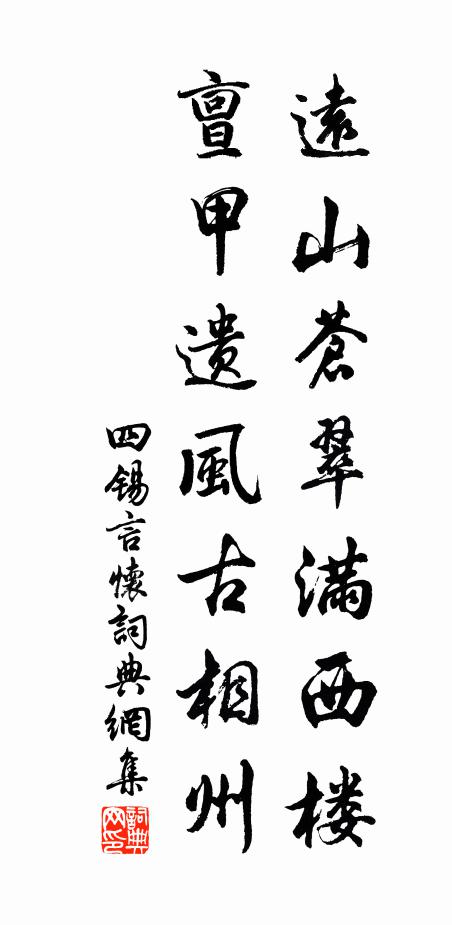 遠山蒼翠滿西楼
亶甲遺風古相州
四锡言懷詞典網集
詞典网印